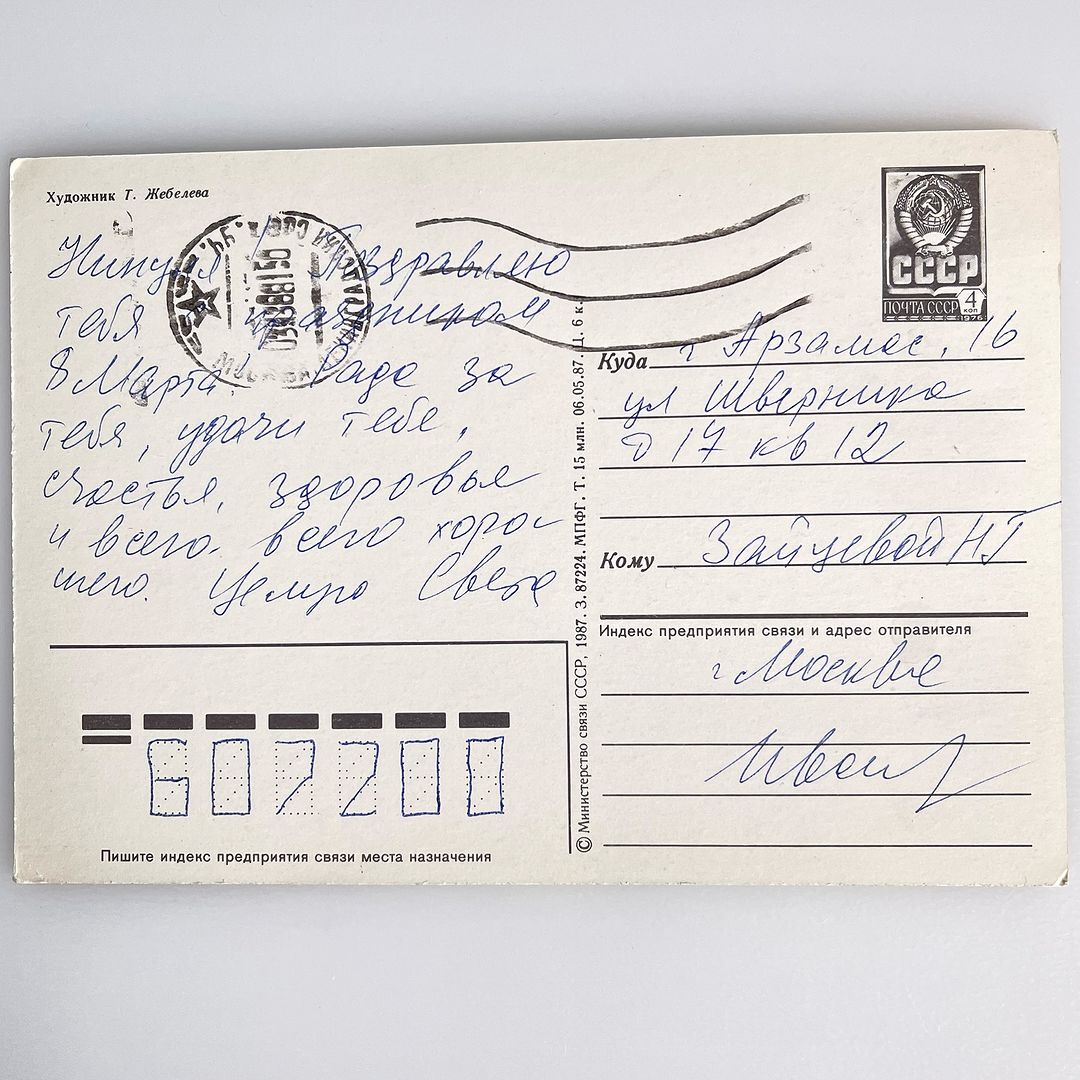 Художник Т. Жебелева
Нинуля! Поздравляю
тебя с праздником
8 Марта. Рада за
тебя, удачи тебе,
счастья, здоровья
и всего. всего хоро-
шего. Целую Света
СССР
ПОЧТА СССР 4 коп
1976
Куда г Арзамас, 16
ул Шверника
д 17 кв 12
Кому Зайцевой НГ
Индекс предприятия связи и адрес отправителя
г Москва
607200
Пишите индекс предприятия связи места назначения
© Министерство связи СССР, 1987. З. 87224. МПФГ. Т. 15 млн. 06.05.87. Ц. 6 к.